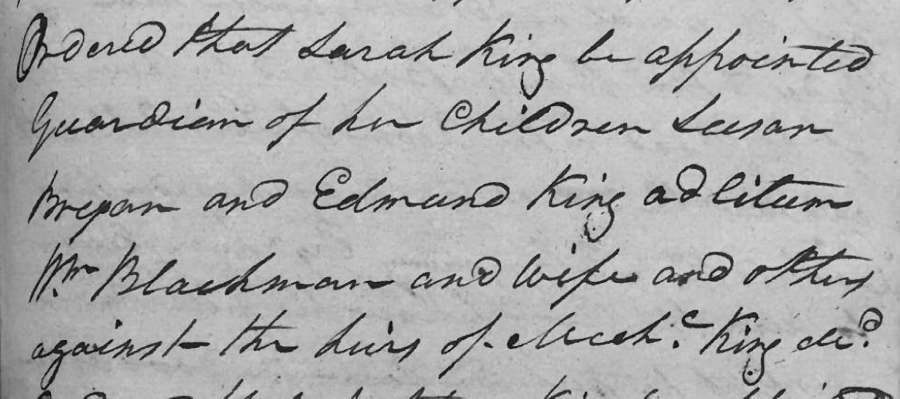 Ordered that Sarah King be appointed
Guardian of her Children Susan
Bryan and Edmund King ad litum
Wm Blackman and wife and others
against the heirs of Mich.c King de.d